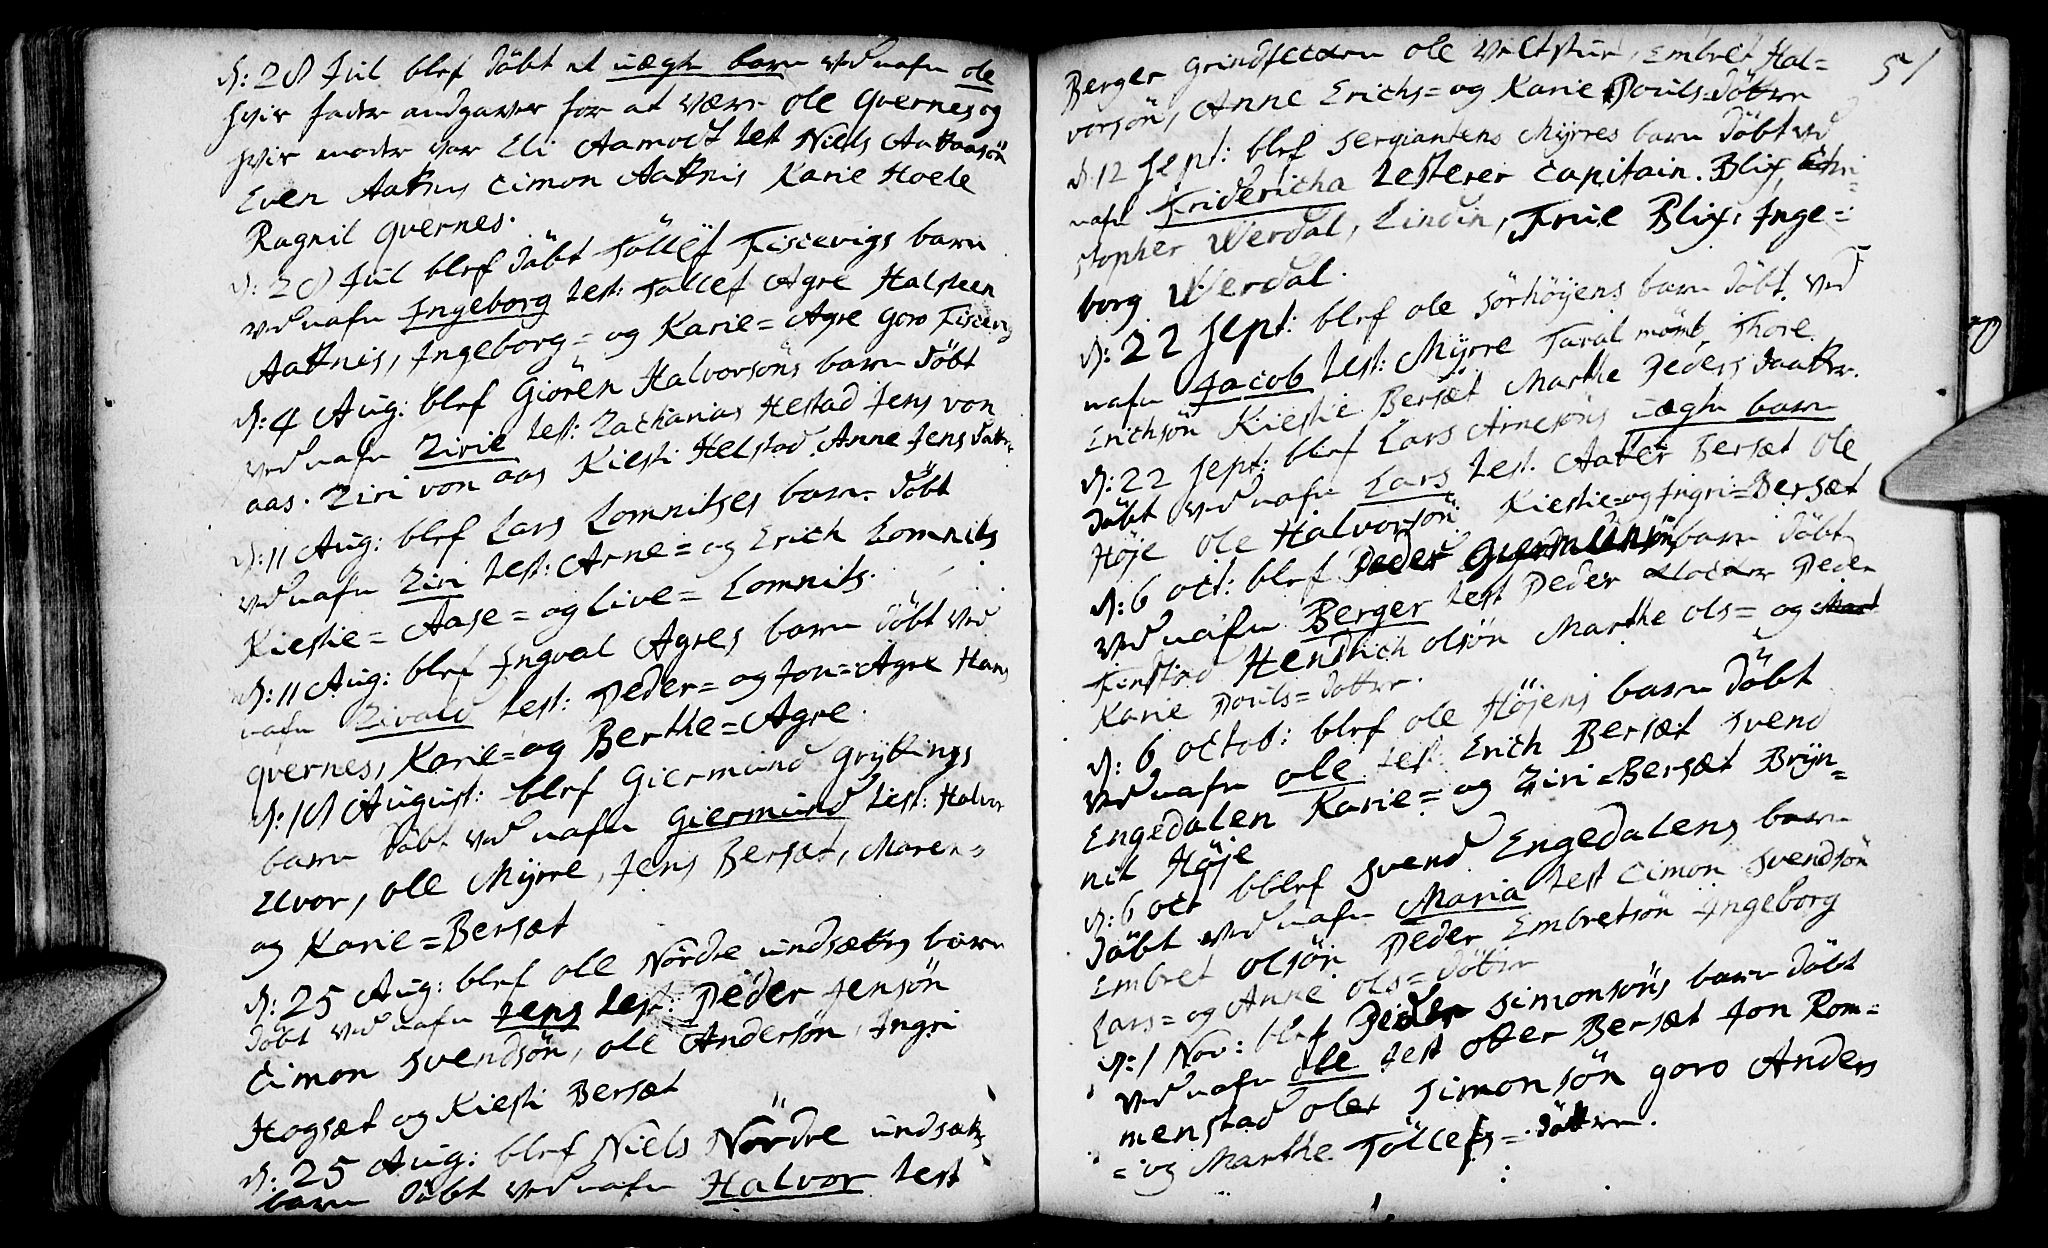 d: 28 Jul blef döbt et uægte barn ved nafn ole
hvis fader andgaves for at være ole qvernes og
hvis moder var Eli Aamodt test Niels
Even Aaknes Cimon Aaknis Karie Hoele
Ragnil qvernes.
d: 28 Jul blef döbt Töllef Fiscevigs barn
ved nafn Ingeborg test: Tollef Agre Halsteen
Aaknis, Ingeborg = og Karie = Agre goro Fiscevig
d: 4 Aug: blef Giören Halvorsöns barn döbt
ved nafn Zirie test: Zacharias Hestad Jens von
aas. Ziri von aas Kiesti Helstad Anne Jens datr.
d: 11 Aug: blef Lars Lomnitses barn döbt
ved nafn Ziri test: Arne = og Erich Lomnits
Kiestie = Aase = og Live = Lomnits.
d: 11 Aug: blef Ingval Agres barn döbt ved
nafn Zivald test: Peder = og Jon = Agre Hans
qvernes, Karie = og Berthe = Agre.
d: 18 August: blef Giermund Gryttings
barn döbt ved nafn Giermund test: Halvor
Uvor, ole Myrre, Jens Bersæt, Maren =
og Karie = Bersæt
d: 25 Aug: blef ole Nördre undsætts barn
döbt ved nafn Jens test: Peder Jensön
Cimon Svendsön, ole Andersön, Ingri
Hogsæt og Kiesti Bersæt
d: 25 Aug: blef Niels Nördre undsæts
barn döbt ved nafn Halvor test
51
Berger ole Embret Hal=
vorsön, Anne Erichs = og Karie Pouls = döttre
d. 12 Sept: blef Sergiantens Myrres barn döbt ved
nafn Fridericha testerer Capitain. Blix, Chri-
stopher Werdal, Lindin, Frue Blix, Inge =
borg Werdal.
d: 22 Sept: blef ole Sörhöyens barn döbt. ved
nafn Jacob test: Myrre Taral mömb, Thore
Erichsön Kiestie Bersæt Marthe Peders daatter.
d: 22 Sept: blef Lars Arnesöns uægte barn
döbt ved nafn Lars test. Bersæt ole
Höje ole Halvorsön Kiestie = og Ingri = Bersæt
d: 6 oct: blef Peder Giermundsöns barn döbt
ved nafn Berger test Peder Peder
Finstad Hendrich olsön Marthe ols = og
Karie Pouls = dottre.
d: 6 octob: blef ole Höjens barn döbt
ved nafn ole test Erich Bersæt Svend
Engedalen Karie = og Ziri = Bersæt Bryn=
nil Höje
d: 6 oct bblef Svend Engedalens barn
döbt ved nafn Maria test Cimon Svendsön
Embret olsön Peder Embretsön Ingeborg
Lars = og Anne ols = döttre
d: 1 Nov: blef Peder Simonsöns barn döbt
ved nafn ole test otter Bersæt Jon Rom=
menstad oler Simonsön goro Anders
= og Marthe Töllefs = döttre.